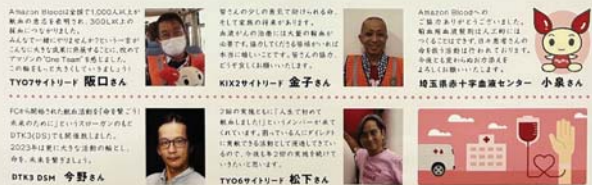 Amazon Bloodは全国で1,000人以上が
献血の意志を表明され、300L以上の
献血につながりました。
みんなで一緒にやりませんか?という一言が
こんなに大きな成果に発展することに、改めて
アマゾンの"One Team"を感じました。
この輪をもっと大きくしていきましょう!
TYO7サイトリード 阪口さん
皆さんの少しの勇気で助けられる命、
そして家族の将来があります。
血液がんの治療には大量の輸血が
必要です。協力してくださる皆様がいれば
本当に嬉しいことです。皆さんの協力、
どうぞ宜しくお願いいたします。
KIX2サイトリード 金子さん
Amazon Bloodへの
ご協力ありがとうございました。
輸血用血液製剤は人工的には
つくることはできず、日々患者さんの
命を救う活動は行われております。
今後とも変わらぬお力添えを
よろしくお願いいたします。
埼玉県赤十字血液センター 小泉さん
FCから開始された献血活動を「命を繋ごう!
未来のために」というスローガンのもと
DTK3(DS)でも開催致しました。
2023年は更に大きな活動の輪とし、
命を、未来を繋ぎましょう。
DTK3 DSM 今野さん
2回の実施ともに「人生で初めて
献血しました」というメンバーが来て
くれています。困っている人にダイレクト
に貢献できる活動として浸透してきてい
るので、今後も年2回の実施を続けて
いきたいと思います。
TYO6サイトリード 松下さん